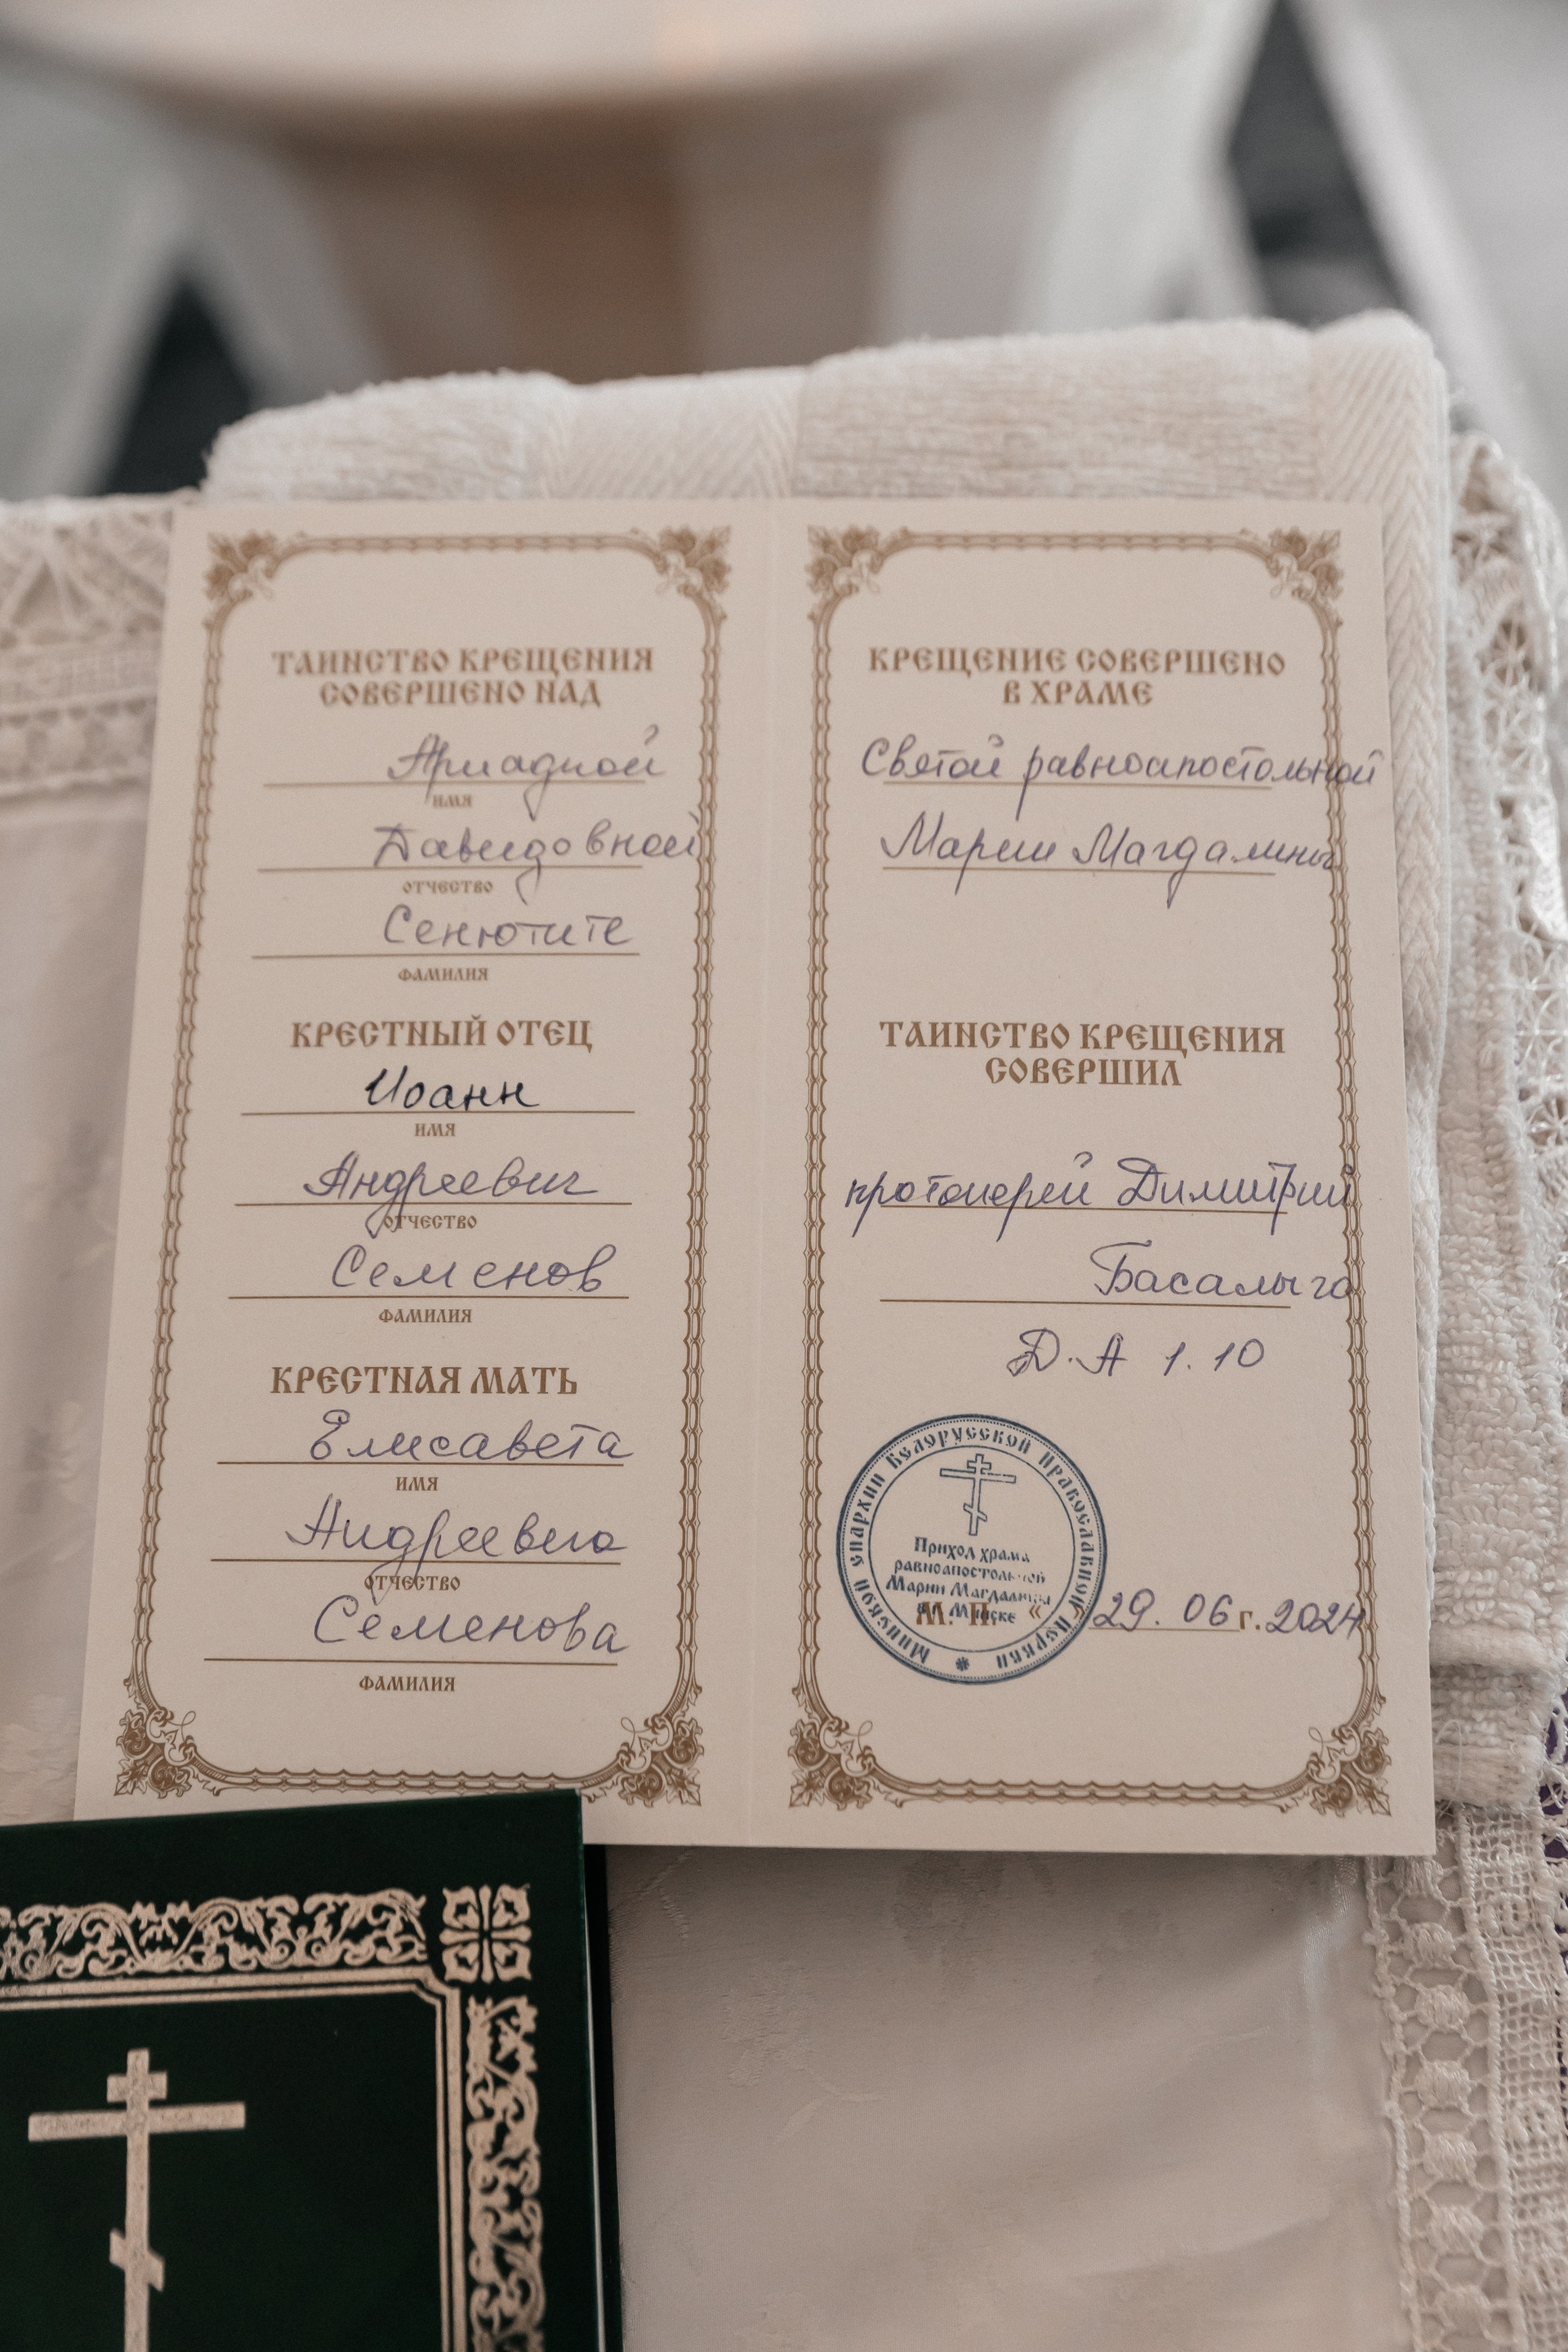 ТАИНСТВО КРЕЩЕНИЯ
СОВЕРШЕНО НАД
Ариадной
ИМЯ
Давидовной
ОТЧЕСТВО
ФАМИЛИЯ
КРЕСТНЫЙ ОТЕЦ
Иоанн
ИМЯ
Андреевич
ОТЧЕСТВО
Семенов
ФАМИЛИЯ
КРЕСТНАЯ МАТЬ
Елисавета
ИМЯ
ОТЧЕСТВО
Семенова
ФАМИЛИЯ
КРЕЩЕНИЕ СОВЕРШЕНО
В ХРАМЕ
Святой равноапостольной
Марии Магдалины
ТАИНСТВО КРЕЩЕНИЯ
СОВЕРШИЛ
протоиерей Димитрий
Басалыго
Д.А 1.10
Минской епархии Белорусской Православной Церкви
Приход храма
равноапостольной
Марии Магдалины
в г. Минске
М. П. « 29. 06 г. 2024